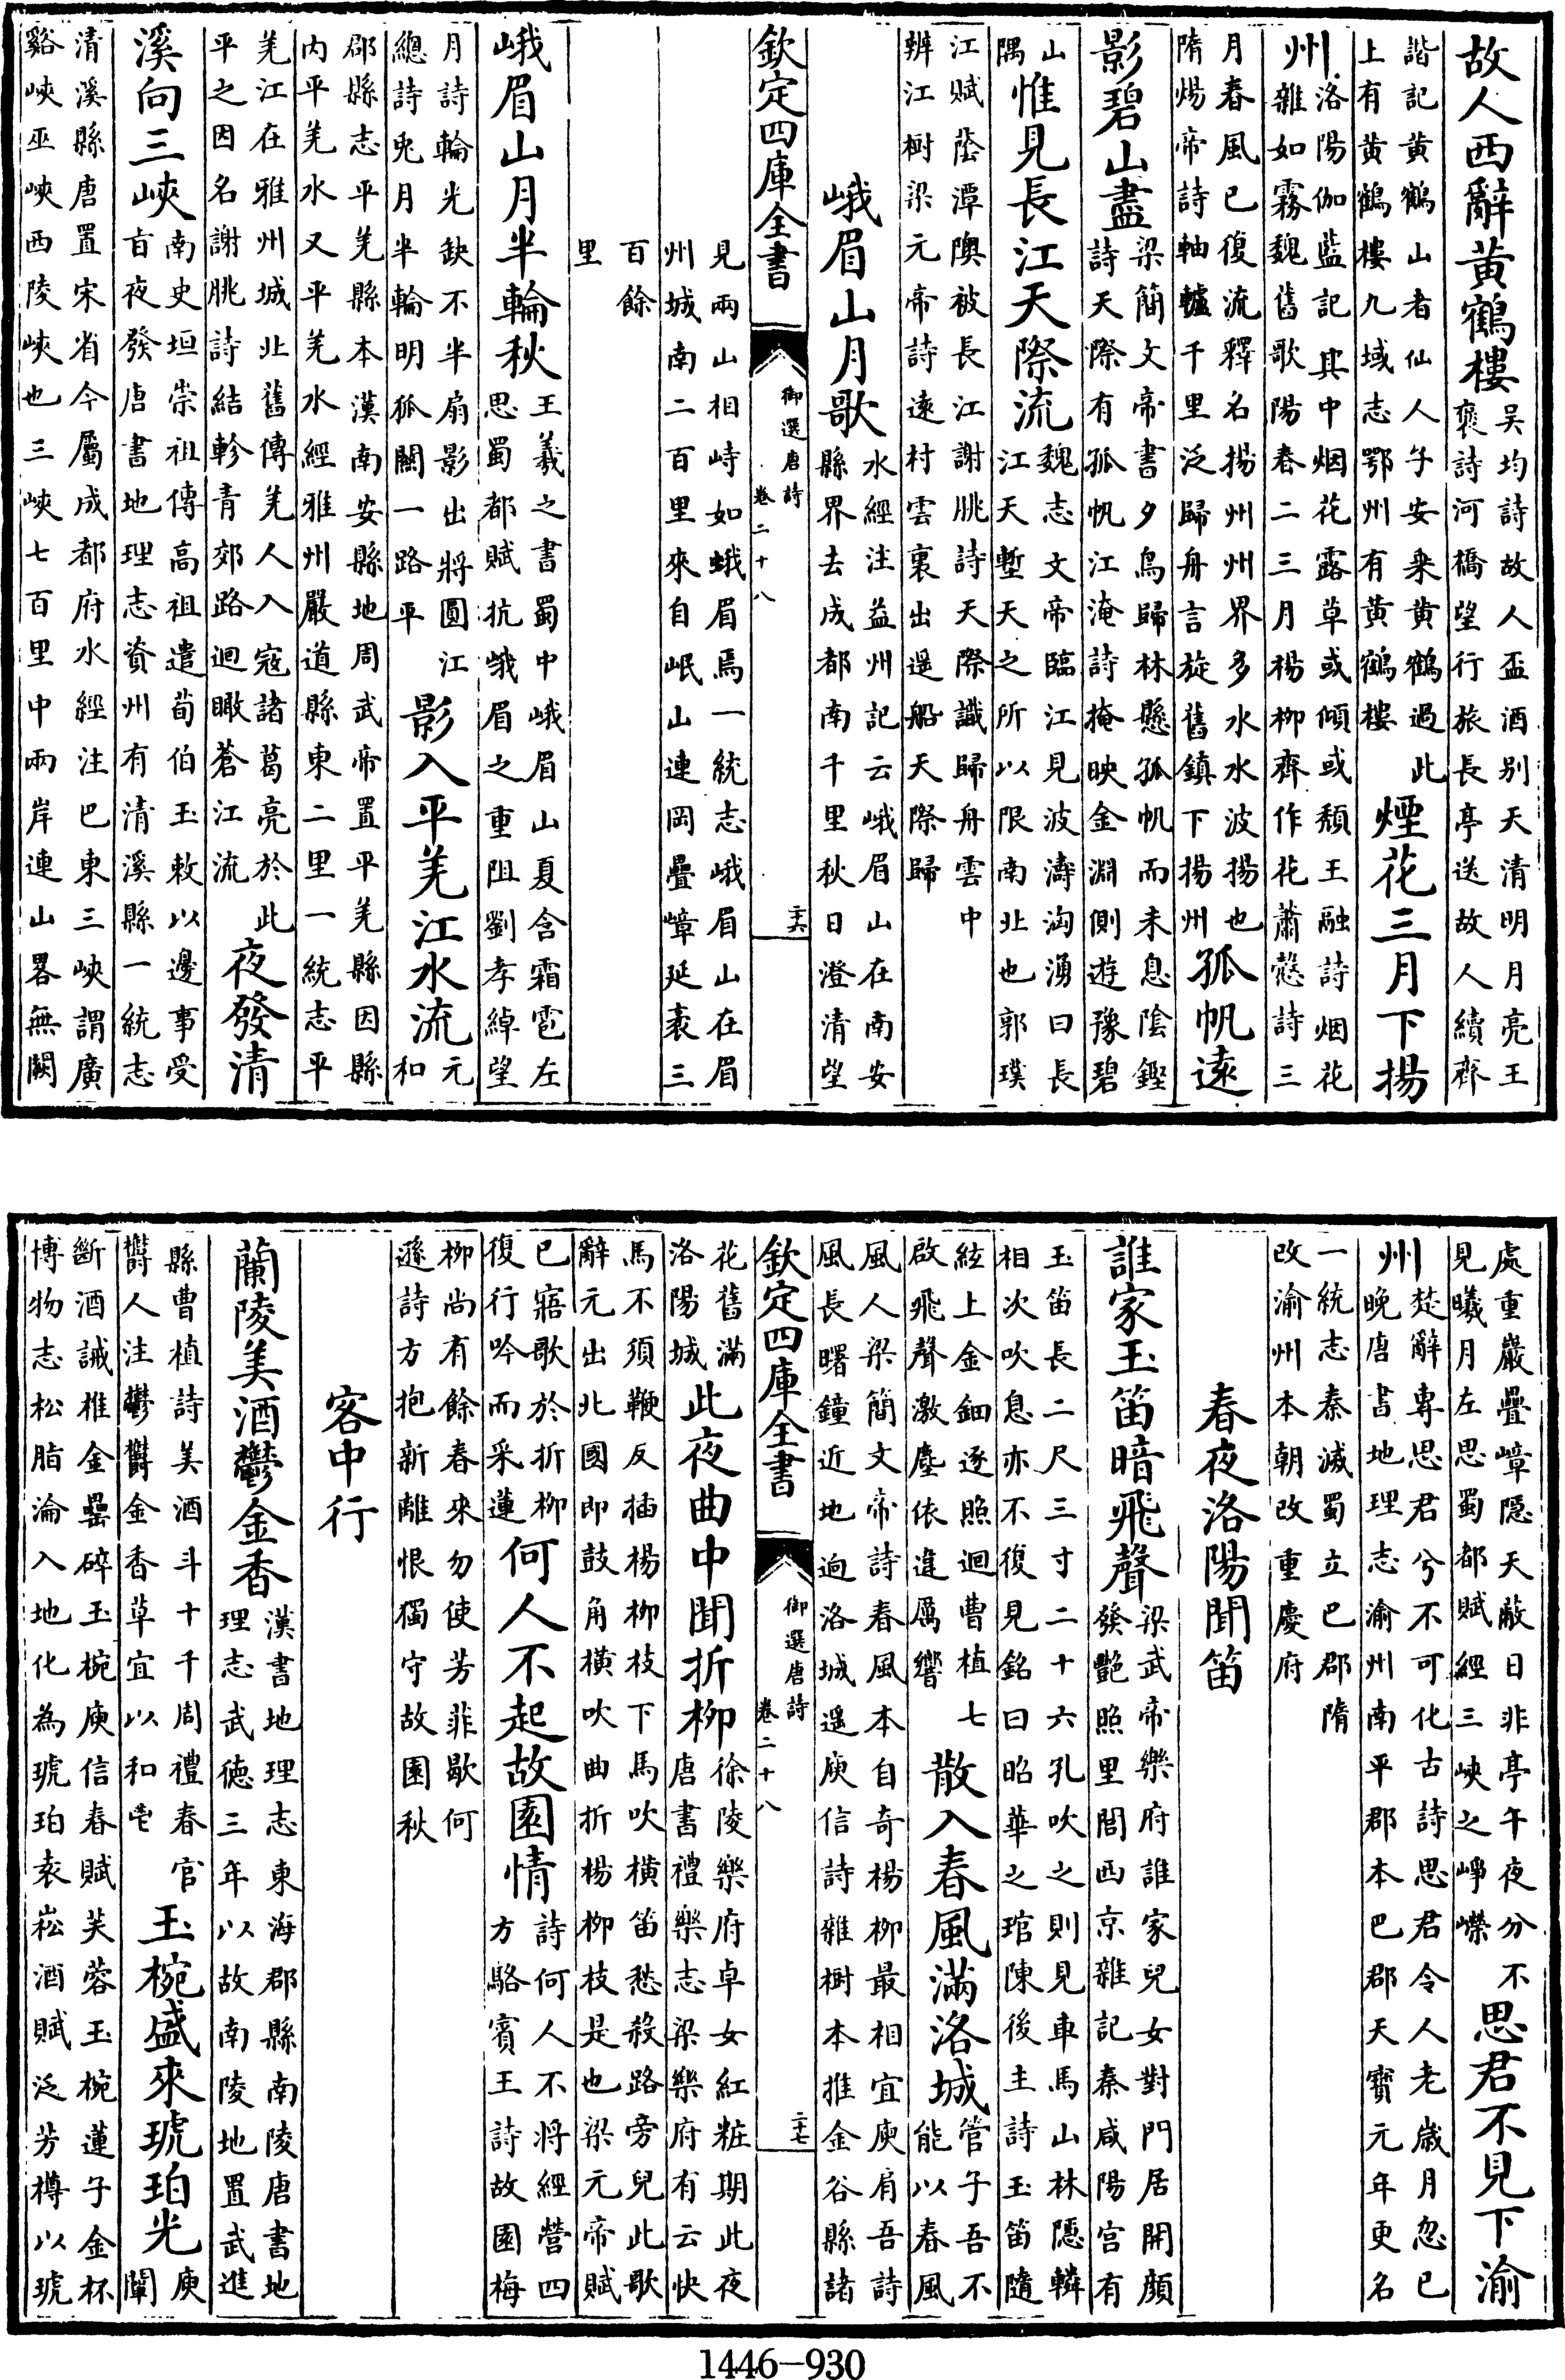 故人西辭黃鶴樓吴均詩故人盃酒别天清明月亮王褒詩河橋望行旅長亭送故人續齊
諧記黄鶴山者仙人子安乗黄鶴過此上有黄鶴樓九域志鄂州有黄鶴樓煙花三月下揚
州洛陽伽藍記其中烟花露草或傾或頽王融詩烟花雜如霧魏舊歌陽春二三月楊柳齊作花蕭慤詩三
月春風已復流釋名揚州州界多水水波揚也隋煬帝詩舳艫千里泛歸舟言旋舊鎮下揚州孤帆遠
影碧山盡梁簡文帝書夕鳥歸林懸孤帆而未息陰鏗詩天際有孤帆江淹詩掩映金淵側遊豫碧
山隅惟見長江天際流魏志文帝臨江見波濤洶湧曰長江天塹天之所以限南北也郭璞
江賦䕃潭隩被長江謝朓詩天際識歸舟雲中辨江樹梁元帝詩遠村雲裏出遥船天際歸
峨眉山月歌水經注益州記云峨眉山在南安縣界去成都南千里秋日澄清望
欽定四庫全書 御選唐詩 卷二十八 二十六
見兩山相峙如蛾眉焉一統志峨眉山在眉州城南二百里來自岷山連岡疊嶂延袤三
百餘里
峨眉山月半輪秋王羲之書蜀中峨眉山夏含霜雹左思蜀都賦抗峨眉之重阻劉孝綽望
月詩輪光缺不半扇影出將圓江總詩兎月半輪明狐關一路平影入平羌江水流元和
郡縣志平羌縣本漢南安縣地周武帝置平羌縣因縣内平羌水又平羌水經雅州嚴道縣東二里一統志平
羌江在雅州城北舊傳羌人入寇諸葛亮於此平之因名謝朓詩結軫青郊路迴瞰蒼江流夜發清
溪向三峽南史垣崇祖傳高祖遣荀伯玉敕以邊事受㫖夜發唐書地理志資州有清溪縣一統志
清溪縣唐置宋省今屬成都府水經注巴東三峽謂廣谿峽巫峽西陵峽也三峽七百里中兩岸連山畧無闕
處重巖疊嶂隱天蔽日非亭午夜分不見曦月左思蜀都賦經三峽之崢嶸思君不見下渝
州楚辭專思君兮不可化古詩思君令人老歲月忽已晚唐書地理志渝州南平郡本巴郡天寶元年更名
一統志秦滅蜀立巴郡隋改渝州本朝改重慶府
春夜洛陽聞笛
誰家玉笛暗飛聲梁武帝樂府誰家兒女對門居開顔發艷照里閭西京雜記秦咸陽宫有
玉笛長二尺三寸二十六孔吹之則見車馬山林隱轔相次吹息亦不復見銘曰昭華之琯陳後主詩玉笛隨
絃上金鈿逐照迴曹植七啟飛聲激塵依違厲響散入春風滿洛城管子吾不能以春風
風人梁簡文帝詩春風本自奇楊柳最相宜庾肩吾詩風長曙鐘近地迥洛城遥庾信詩雜樹本推金谷縣諸
欽定四庫全書 御選唐詩 卷二十八 二十七
花舊滿洛陽城此夜曲中聞折柳徐陵樂府卓女紅粧期此夜唐書禮樂志梁樂府有云快
馬不須鞭反插楊柳枝下馬吹橫笛愁殺路旁兒此歌辭元出北國即鼓角橫吹曲折楊柳枝是也梁元帝賦
已寤歌於折柳復行吟而采蓮何人不起故園情詩何人不將經營四方駱賓王詩故園梅
柳尚有餘春來勿使芳菲歇何遜詩方抱新離恨獨守故園秋
客中行
蘭陵美酒鬱金香漢書地理志東海郡縣南陵唐書地理志武德三年以故南陵地置武進
縣曹植詩美酒斗十千周禮春官欝人注鬱欝金香草宜以和鬯玉椀盛來琥珀光庾闡
斷酒誡椎金罍碎玉椀庾信春賦芙蓉玉椀蓮子金杯博物志松脂淪入地化為琥珀袁崧酒賦泛芳樽以琥
1446—930